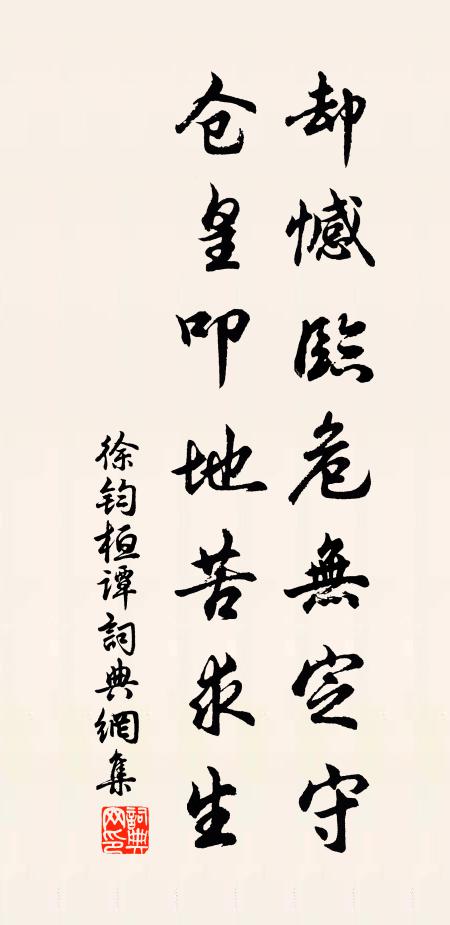 却憾臨危無定守
仓皇叩地苦求生
徐钧桓谭詞典網集
詞典网印